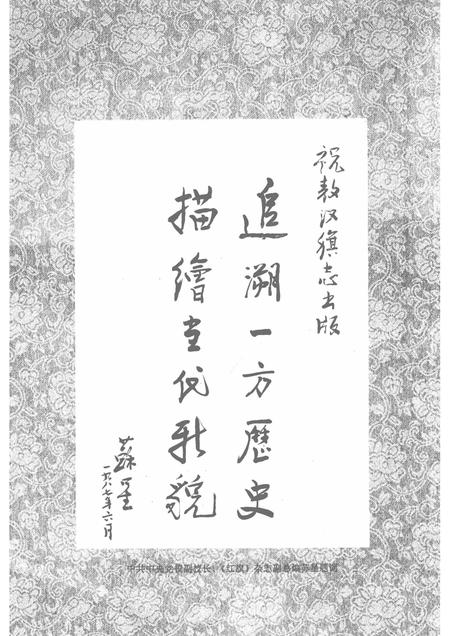 祝敖汉旗志出版
追溯一方歷史
描繪当代新貌
蘇星
一九八七年六月
中共中央党校副校长、《红旗》杂志副总编苏星题词